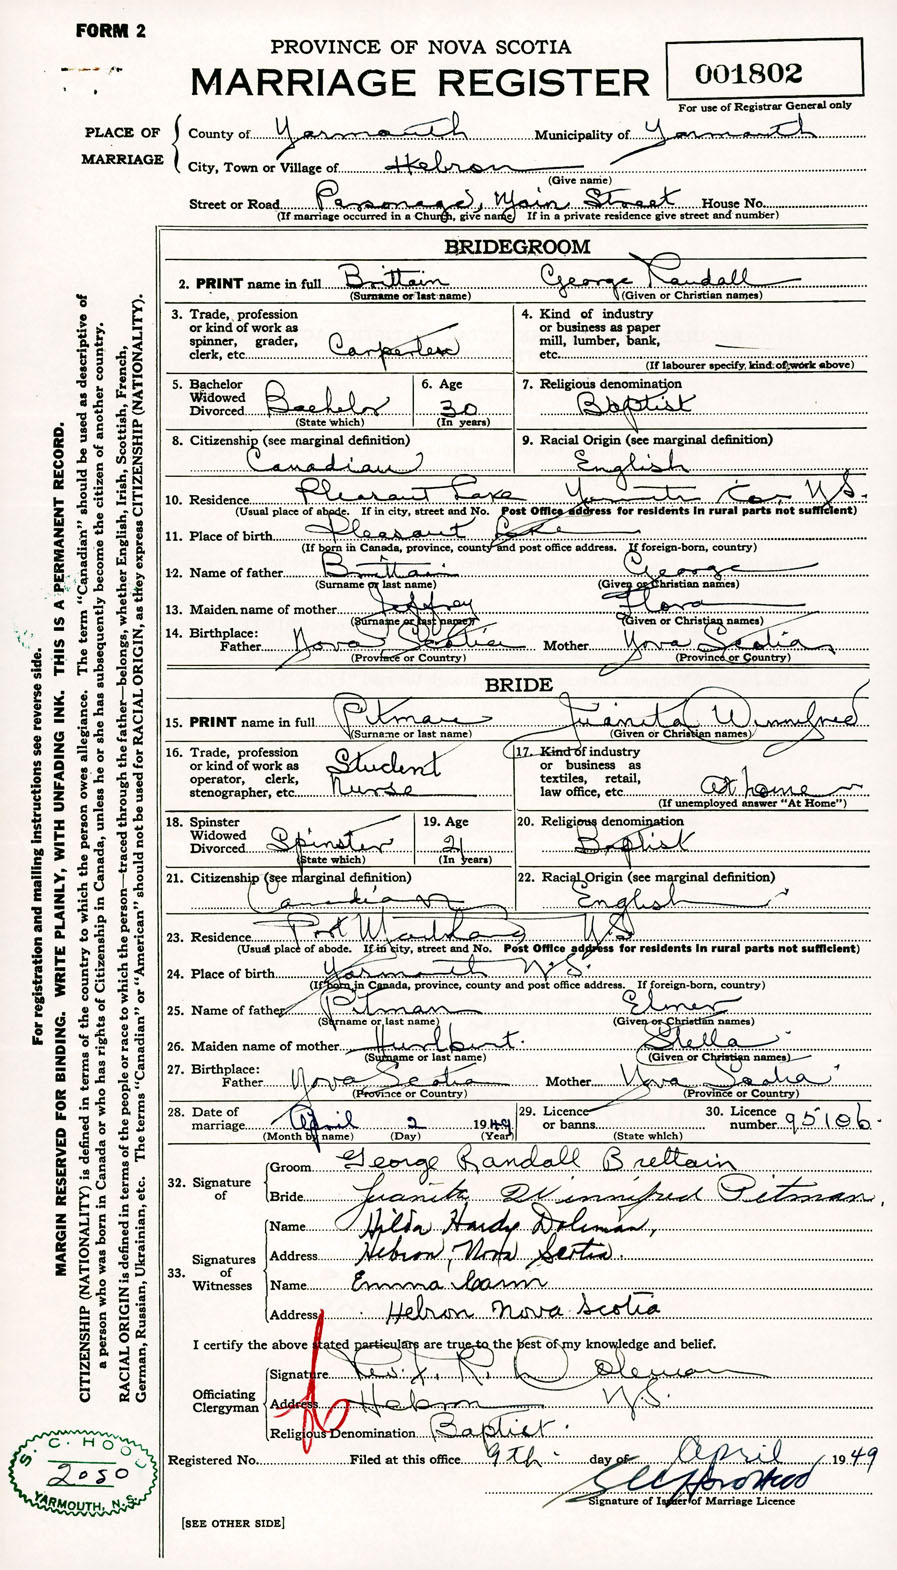 FORM 2
PROVINCE OF NOVA SCOTIA
MARRIAGE REGISTER
001802
For use of Registrar General only
PLACE OF MARRIAGE
County of Yarmouth Municipality of Yarmouth
City, Town or Village of Hebron
(Give name)
Street or Road Parsonage, Main Street House No.
(If marriage occurred in a Church, give name) If in a private residence give street and number)
BRIDEGROOM
2. PRINT name in full Brittain George Randall
(Surname or last name) (Given or Christian names)
3. Trade, profession or kind of work as spinner, grader, clerk, etc. Carpenter
4. Kind of industry or business as paper mill, lumber, bank, etc.
(If labourer specify kind of work above)
5. Bachelor Widowed Divorced Bachelor
(State which)
6. Age 30
(In years)
7. Religious denomination
Baptist
8. Citizenship (see marginal definition)
Canadian
9. Racial Origin (see marginal definition)
English
10. Residence Pleasant Lake Yarmouth Co. N.S.
(Usual place of abode. If in city, street and No. Post Office address for residents in rural parts not sufficient)
11. Place of birth Pleasant Lake
(If born in Canada, province, county and post office address. If foreign-born, country)
12. Name of father Brittain George
(Surname or last name) (Given or Christian names)
13. Maiden name of mother Jeffrey Flora
(Surname or last name) (Given or Christian names)
14. Birthplace:
Father Nova Scotia Mother Nova Scotia
(Province or Country) (Province or Country)
BRIDE
15. PRINT name in full Pitman Juanita Winnifred
(Surname or last name) (Given or Christian names)
16. Trade, profession or kind of work as operator, clerk, stenographer, etc. Student Nurse
17. Kind of industry or business as textiles, retail, law office, etc. At home
(If unemployed answer "At Home")
18. Spinster Widowed Divorced Spinster
(State which)
19. Age 21
(In years)
20. Religious denomination
Baptist
21. Citizenship (see marginal definition)
Canadian
22. Racial Origin (see marginal definition)
English
23. Residence Port Maitland N.S.
(Usual place of abode. If in city, street and No. Post Office address for residents in rural parts not sufficient)
24. Place of birth Yarmouth N.S.
(If born in Canada, province, county and post office address. If foreign-born, country)
25. Name of father Pitman Elmer
(Surname or last name) (Given or Christian names)
26. Maiden name of mother Hurlburt Stella
(Surname or last name) (Given or Christian names)
27. Birthplace:
Father Nova Scotia Mother Nova Scotia
(Province or Country) (Province or Country)
28. Date of marriage April 2 1949
(Month by name) (Day) (Year)
29. Licence or banns
(State which)
30. Licence number 95106
32. Signature of
Groom George Randall Brittain
Bride Juanita Winnifred Pitman
33. Signatures of Witnesses
Name Hilda Hardy Doleman,
Address Hebron, Nova Scotia.
Name Emma Cann
Address Hebron Nova Scotia
I certify the above stated particulars are true to the best of my knowledge and belief.
Officiating Clergyman
Signature Rev. J. R. Doleman
Address Hebron N.S.
Religious Denomination Baptist.
Registered No. Filed at this office 9th day of April 1949
Signature of Issuer of Marriage Licence
[SEE OTHER SIDE]
2080
YARMOUTH, N.S.
For registration and mailing instructions see reverse side.
MARGIN RESERVED FOR BINDING. WRITE PLAINLY, WITH UNFADING INK. THIS IS A PERMANENT RECORD.
CITIZENSHIP (NATIONALITY) is defined in terms of the country to which the person owes allegiance. The term "Canadian" should be used as descriptive of
a person who was born in Canada or who has rights of Citizenship in Canada, unless he or she has subsequently become the citizen of another country.
RACIAL ORIGIN is defined in terms of the people or race to which the person—traced through the father—belongs, whether English, Irish, Scottish, French,
German, Russian, Ukrainian, etc. The terms "Canadian" or "American" should not be used for RACIAL ORIGIN, as they express CITIZENSHIP (NATIONALITY).